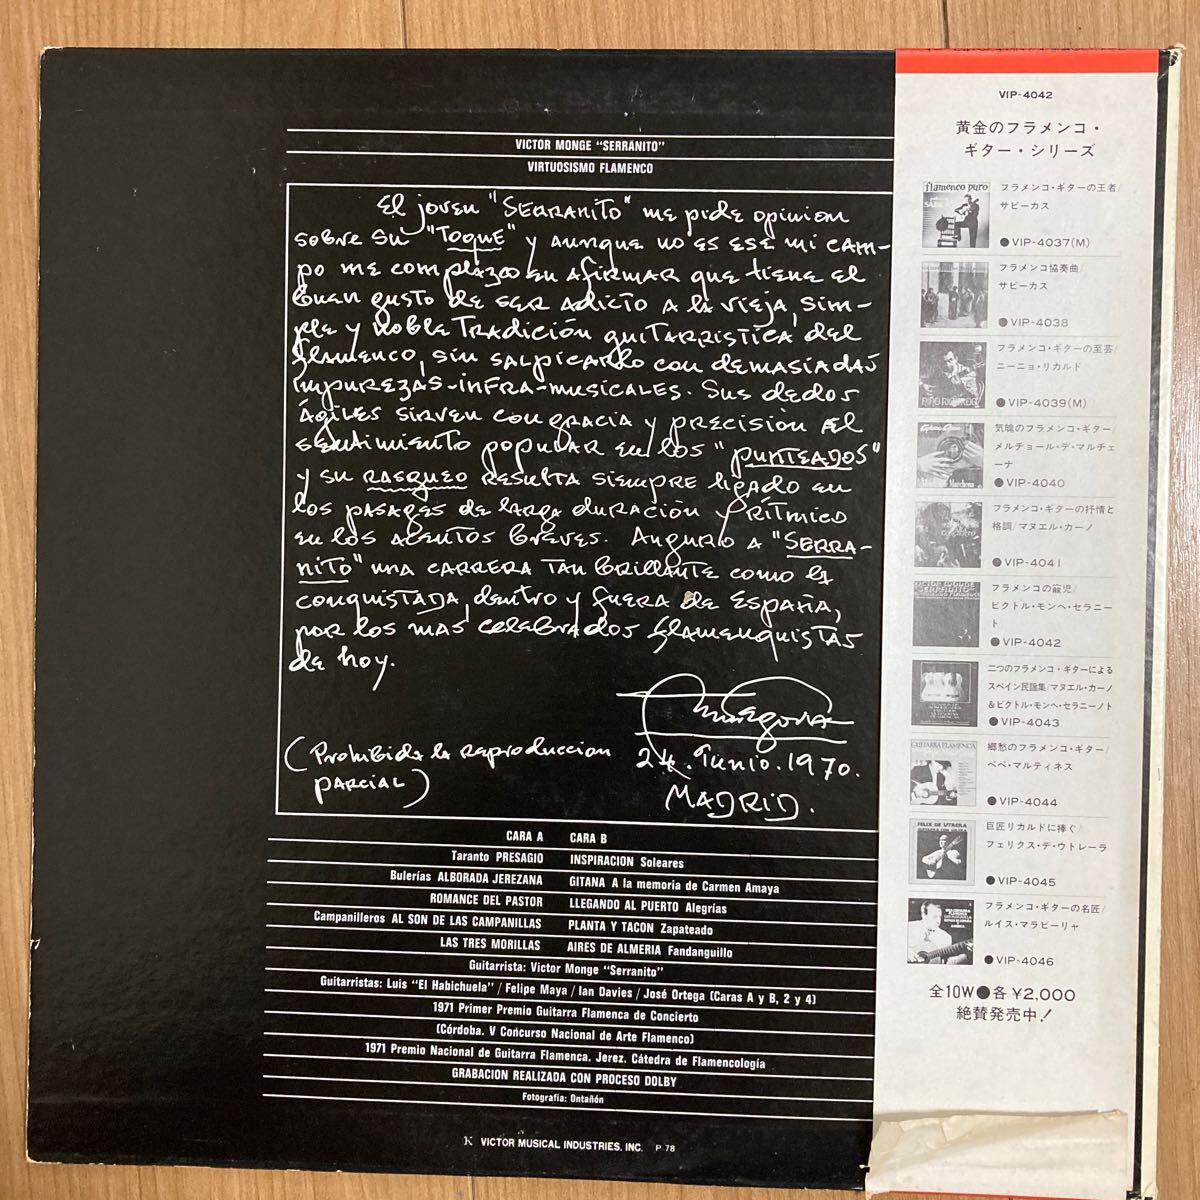 VICTOR MONGE "SERRANITO"
VIRTUOSISMO FLAMENCO
El joven "SERRANITO" me pide opinion
sobre su "TOQUE" y aunque no es ese mi cam-
po me complazco en afirmar que tiene el
buen gusto de ser adicto a la vieja, sim-
ple y noble tradición guitarristica del
flamenco, sin salpicarlo con demasiadas
impurezas-infra-musicales. Sus dedos
ágiles sirven con gracia y precisión al
sentimiento popular en los "punteados"
y su rasqueo resulta siempre ligado en
los pasages de larga duración y rítmico
en los acentos breves. Auguro a "SERRA-
NITO" una carrera tan brillante como la
conquistada, dentro y fuera de España,
por los mas celebrados flamenquistas
de hoy.
24. Junio. 1970.
MADRID.
(Prohibida la reproduccion
parcial)
CARA A
Taranto PRESAGIO
Bulerías ALBORADA JEREZANA
ROMANCE DEL PASTOR
Campanilleros AL SON DE LAS CAMPANILLAS
LAS TRES MORILLAS
CARA B
INSPIRACION Soleares
GITANA A la memoria de Carmen Amaya
LLEGANDO AL PUERTO Alegrías
PLANTA Y TACON Zapateado
AIRES DE ALMERIA Fandanguillo
Guitarrista: Victor Monge "Serranito"
Guitarristas: Luis "El Habichuela" / Felipe Maya / Ian Davies / José Ortega (Caras A y B, 2 y 4)
1971 Primer Premio Guitarra Flamenca de Concierto
(Córdoba. V Concurso Nacional de Arte Flamenco)
1971 Premio Nacional de Guitarra Flamenca. Jerez. Cátedra de Flamencología
GRABACION REALIZADA CON PROCESO DOLBY
Fotografia: Ontañón
K VICTOR MUSICAL INDUSTRIES, INC. P 78
VIP-4042
黄金のフラメンコ・
ギター・シリーズ
flamenco puro
フラメンコ・ギターの王者/
サビーカス
●VIP-4037(M)
フラメンコ協奏曲/
サビーカス
●VIP-4038
フラメンコ・ギターの至芸/
ニーニョ・リカルド
●VIP-4039(M)
気魄のフラメンコ・ギター/
メルチョール・デ・マルチェ
ーナ
●VIP-4040
フラメンコ・ギターの抒情と
格調/マヌエル・カーノ
●VIP-4041
フラメンコの寵児/
ビクトル・モンヘ・セラニー
ト
●VIP-4042
二つのフラメンコ・ギターによる
スペイン民謡集/マヌエル・カーノ
&ビクトル・モンヘ・セラニーノト
●VIP-4043
GUITARRA FLAMENCA
郷愁のフラメンコ・ギター/
ペペ・マルティネス
●VIP-4044
FELIX DE UTRERA
巨匠リカルドに捧ぐ/
フェリクス・デ・ウトレーラ
●VIP-4045
フラメンコ・ギターの名匠/
ルイス・マラビーリャ
●VIP-4046
全10W●各¥2,000
絶賛発売中!